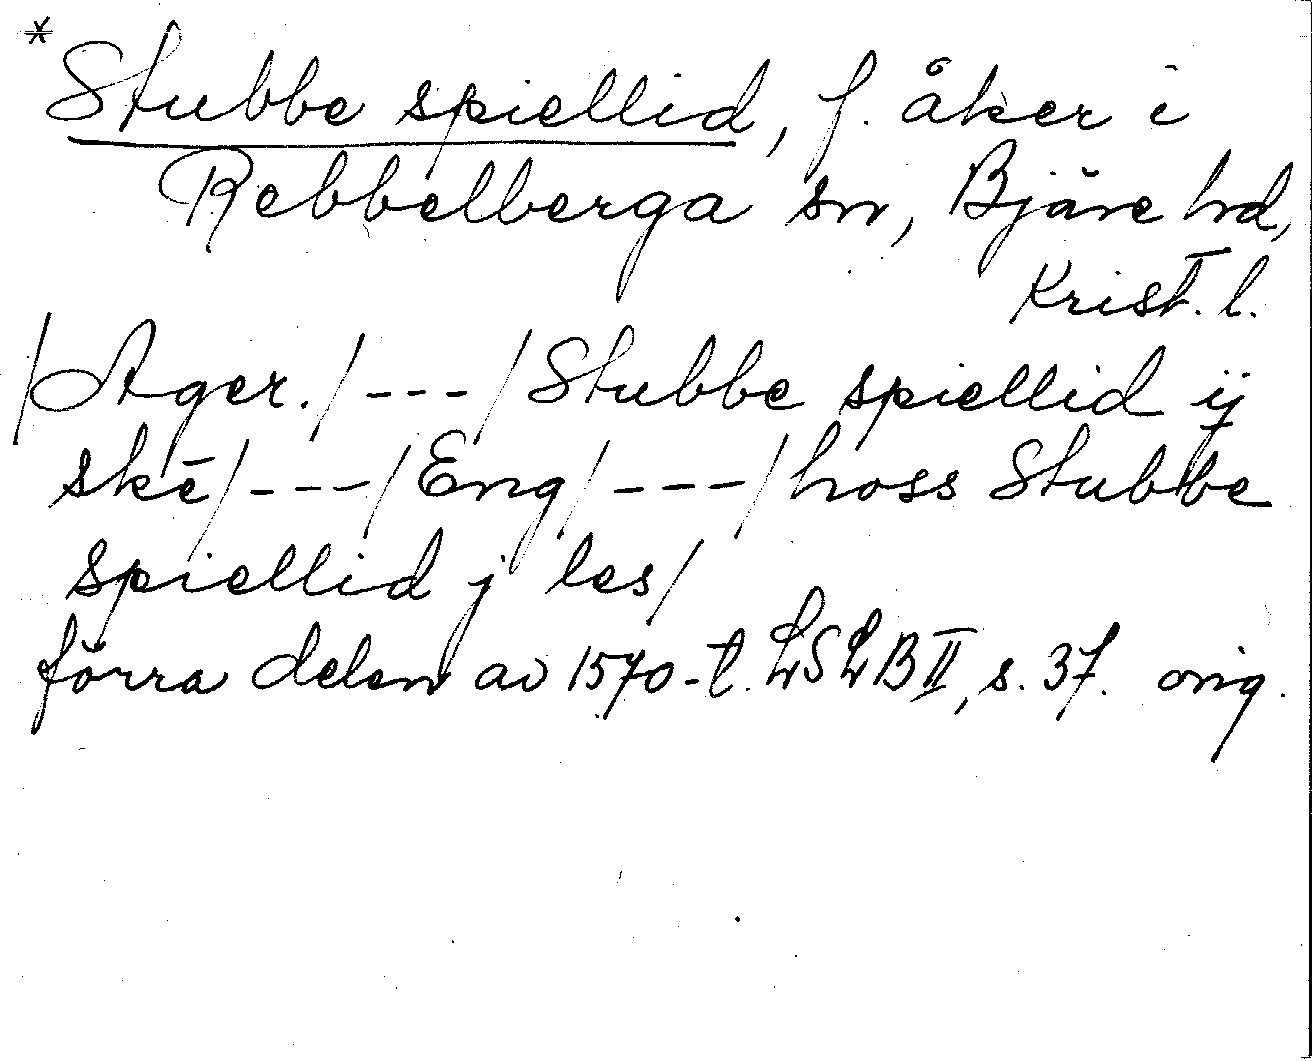 *
Stubbe spiellid, f. åker i
Rebbelberga sn, Bjäre hd,
Krist. l.
/Ager./---/Stubbe spiellid ij
skē/---/Eng/---/hoss Stubbe
spiellid j les/
förra delen av 1570-t. LSLB II, s. 37. orig.